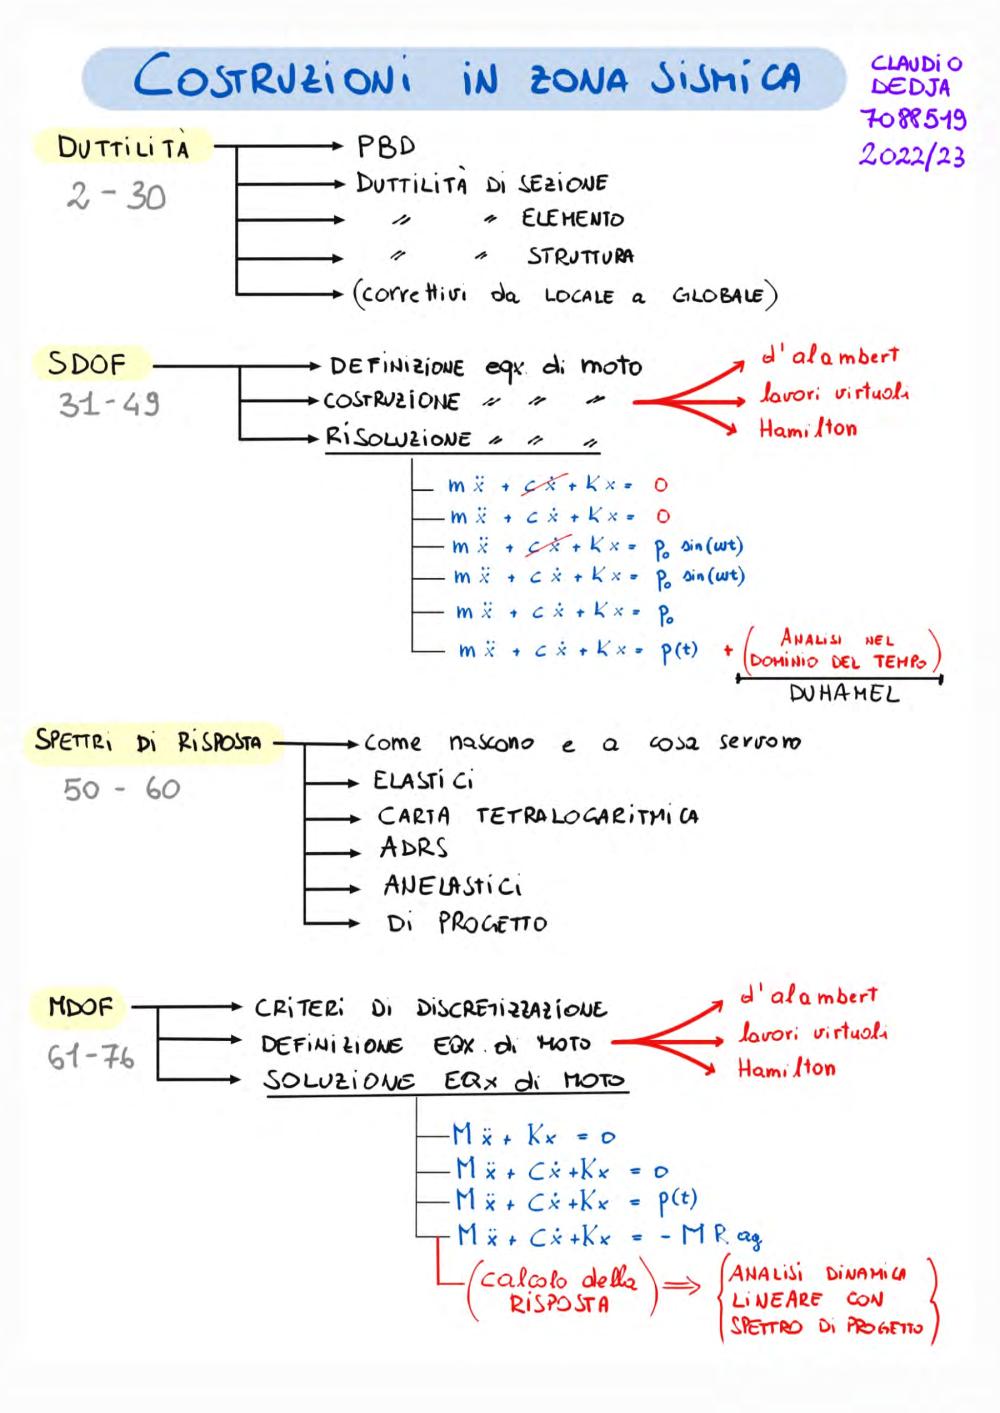 COSTRUZIONI IN ZONA SISMICA
CLAUDIO
DEDJA
7088519
2022/23
DUTTILITÀ
2 - 30
PBD
DUTTILITÀ DI SEZIONE
〃 〃 ELEMENTO
〃 〃 STRUTTURA
(correttivi da LOCALE a GLOBALE)
SDOF
31-49
DEFINIZIONE eqx. di moto
COSTRUZIONE 〃 〃 〃
RISOLUZIONE 〃 〃 〃
d'alambert
lavori virtuali
Hamilton
m ẍ + c ẋ + K x = 0
m ẍ + c ẋ + K x = 0
m ẍ + c ẋ + K x = p₀ sin(ωt)
m ẍ + c ẋ + K x = p₀ sin(ωt)
m ẍ + c ẋ + K x = p₀
m ẍ + c ẋ + K x = p(t) + (ANALISI NEL
DOMINIO DEL TEMPO)
DUHAMEL
SPETTRI DI RISPOSTA
50 - 60
come nascono e a cosa servono
ELASTICI
CARTA TETRALOGARITMICA
ADRS
ANELASTICI
DI PROGETTO
MDOF
61-76
CRITERI DI DISCRETIZZAZIONE
DEFINIZIONE EQX. di MOTO
SOLUZIONE EQX di MOTO
d'alambert
lavori virtuali
Hamilton
M ẍ + K x = 0
M ẍ + C ẋ + K x = 0
M ẍ + C ẋ + K x = p(t)
M ẍ + C ẋ + K x = - M R ag
(calcolo della
RISPOSTA) ⇒
{ANALISI DINAMICA
LINEARE CON
SPETTRO DI PROGETTO}